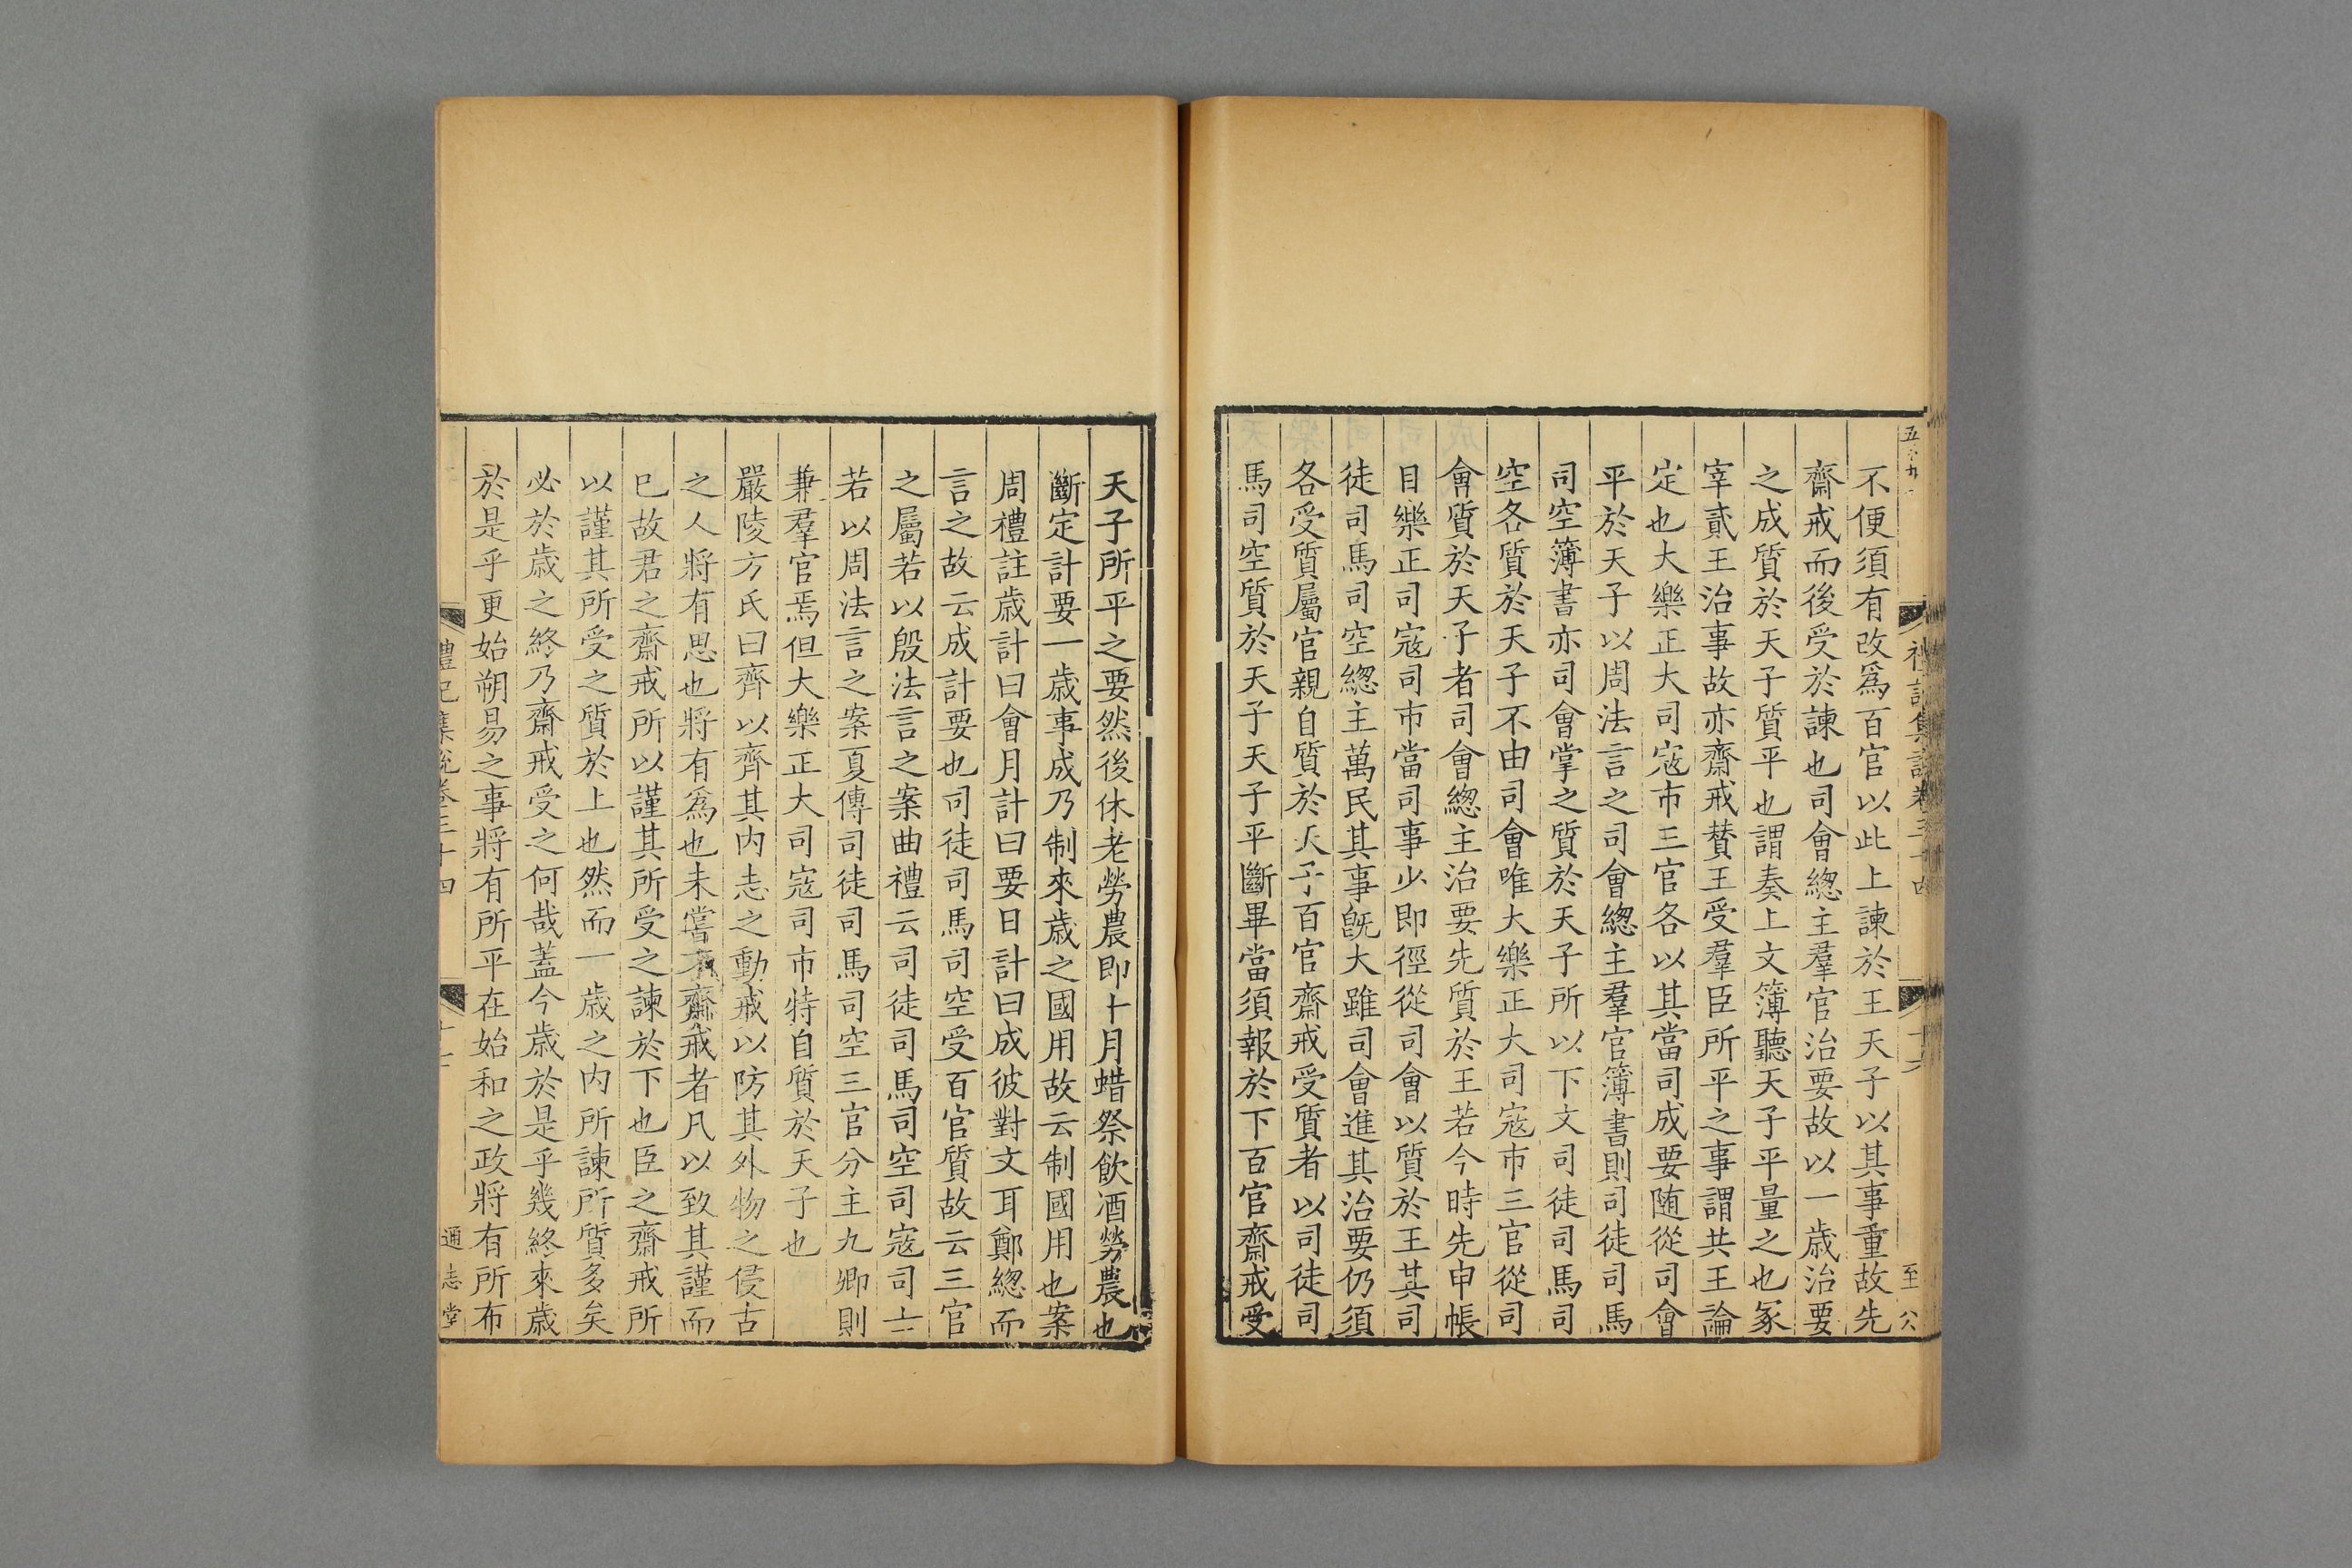 不便須有改爲百官以此上諫於王天子以其事重故先
齋戒而後受於諫也司會緫主羣官治要故以一歳治要
之成質於天子質平也謂奏上文簿聽天子平量之也冢
宰貳王治事故亦齋戒賛王受羣臣所平之事謂共王論
定也大樂正大司宼市三官各以其當司成要随從司會
平於天子以周法言之司會緫主羣官簿書則司徒司馬
司空簿書亦司會掌之質於天子所以下文司徒司馬司
空各質於天子不由司會唯大樂正大司宼市三官從司
會質於天子者司會緫主治要先質於王若今時先申帳
目樂正司宼司市當司事少即徑從司會以質於王其司
徒司馬司空緫主萬民其事旣大雖司會進其治要仍須
各受質屬官親自質於天子百官齋戒受質者以司徒司
馬司空質於天子天子平斷畢當須報於下百官齋戒受
天子所平之要然後休老勞農即十月蜡祭飲酒勞農也
斷定計要一歳事成乃制來歳之國用故云制國用也案
周禮註歳計曰會月計曰要日計曰成彼對文耳鄭緫而
言之故云成計要也司徒司馬司空受百官質故云三官
之屬若以殷法言之案曲禮云司徒司馬司空司宼司士
若以周法言之案夏傳司徒司馬司空三官分主九卿則
兼羣官焉但大樂正大司宼司市特自質於天子也
嚴陵方氏曰齊以齊其内志之動戒以防其外物之侵古
之人將有思也將有爲也未嘗不齋戒者凡以致其謹而
已故君之齋戒所以謹其所受之諫於下也臣之齋戒所
以謹其所受之質於上也然而一歳之内所諫所質多矣
必於歳之終乃齋戒受之何哉蓋今歳於是乎幾終來歳
於是乎更始朔易之事將有所平在始和之政將有所布
禮記集説卷三十四
通志堂